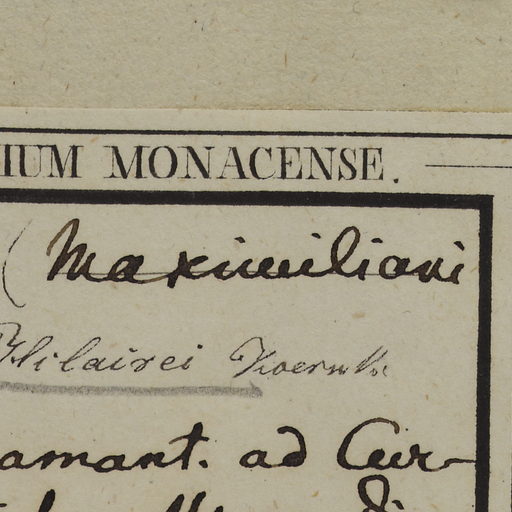 IUM MONACENSE.
( Maximiliani
Hilairei Koernke
amant. ad Cur-